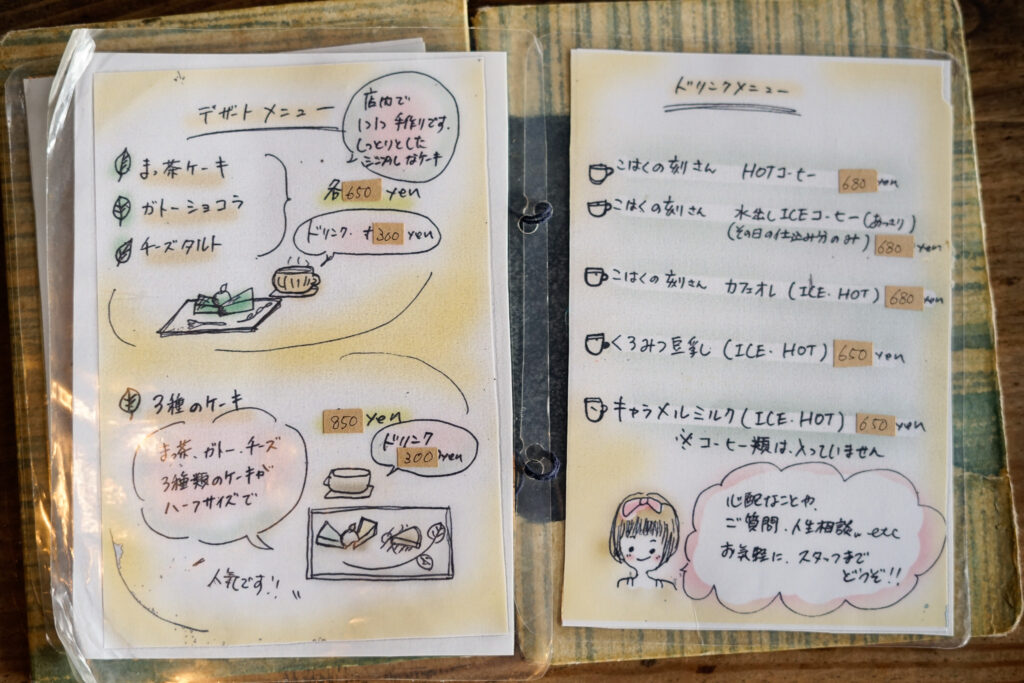 デザートメニュー
店内で
1つ1つ 手作りです。
しっとりとした
ミニサイズなケーキ
まっ茶ケーキ
ガトーショコラ
チーズタルト
各650 yen
ドリンク. +300 yen
3種のケーキ
850 yen
まっ茶、ガトー、チーズ
3種類のケーキが
ハーフサイズで
ドリンク
300 yen
人気です!!
ドリンクメニュー
こはくの刻さん HOTコーヒー 680 yen
こはくの刻さん 水出しICEコーヒー(あっさり)
(その日の仕込み分のみ) 680 yen
こはくの刻さん カフェオレ (ICE・HOT) 680 yen
くろみつ豆乳し (ICE・HOT) 650 yen
キャラメルミルク(ICE・HOT) 650 yen
※コーヒー類は、入っていません
心配なことや、
ご質問、人生相談、、etc
お気軽に、スタッフまで
どうぞ!!